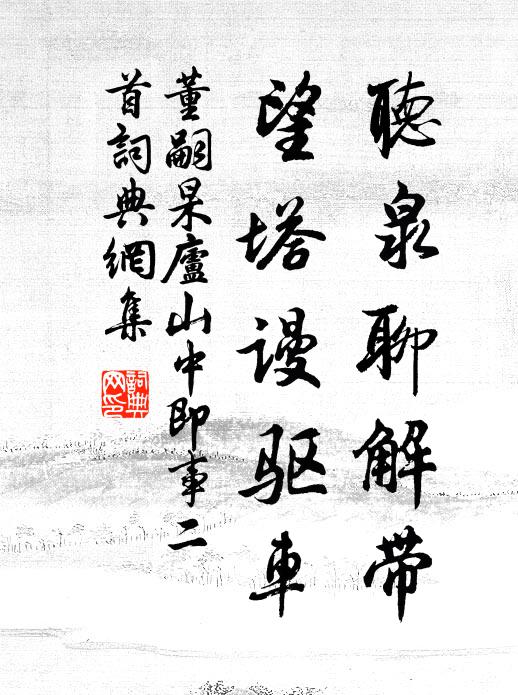 聽泉聊解帶
望塔謾驱車
董嗣杲廬山中即事二
首詞典網集
詞典
网印